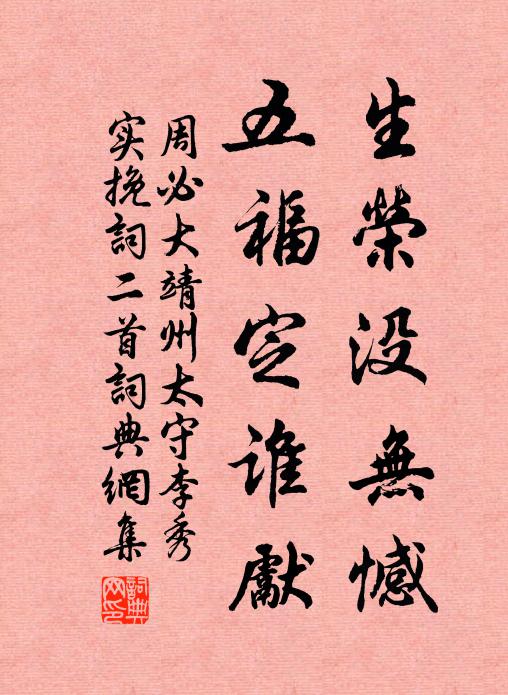 生榮没無憾
五福定誰獻
周必大靖州太守李秀
实挽詞二首詞典網集
詞典
网印